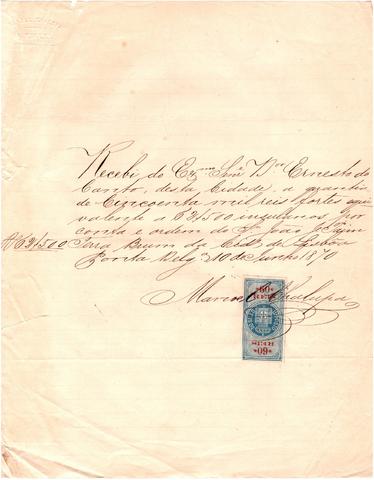 Recebi do Exmo Snr Dor Ernesto do
Canto, desta Cidade, a quantia
de Cincoenta mil reis fortes equi
valente a 62/500 insulanos, por
conta e ordem do Sr João
#62/500 Terra Brum da Cide de Lisboa
Ponta Delga 10 de Junho 1870
Manoel
60
REIS
REIS
60